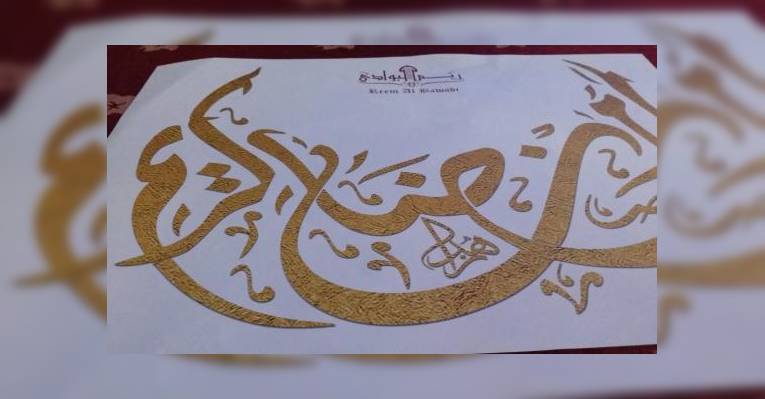 ريم البوادي
Reem Al Bawadi
رمضان كريم